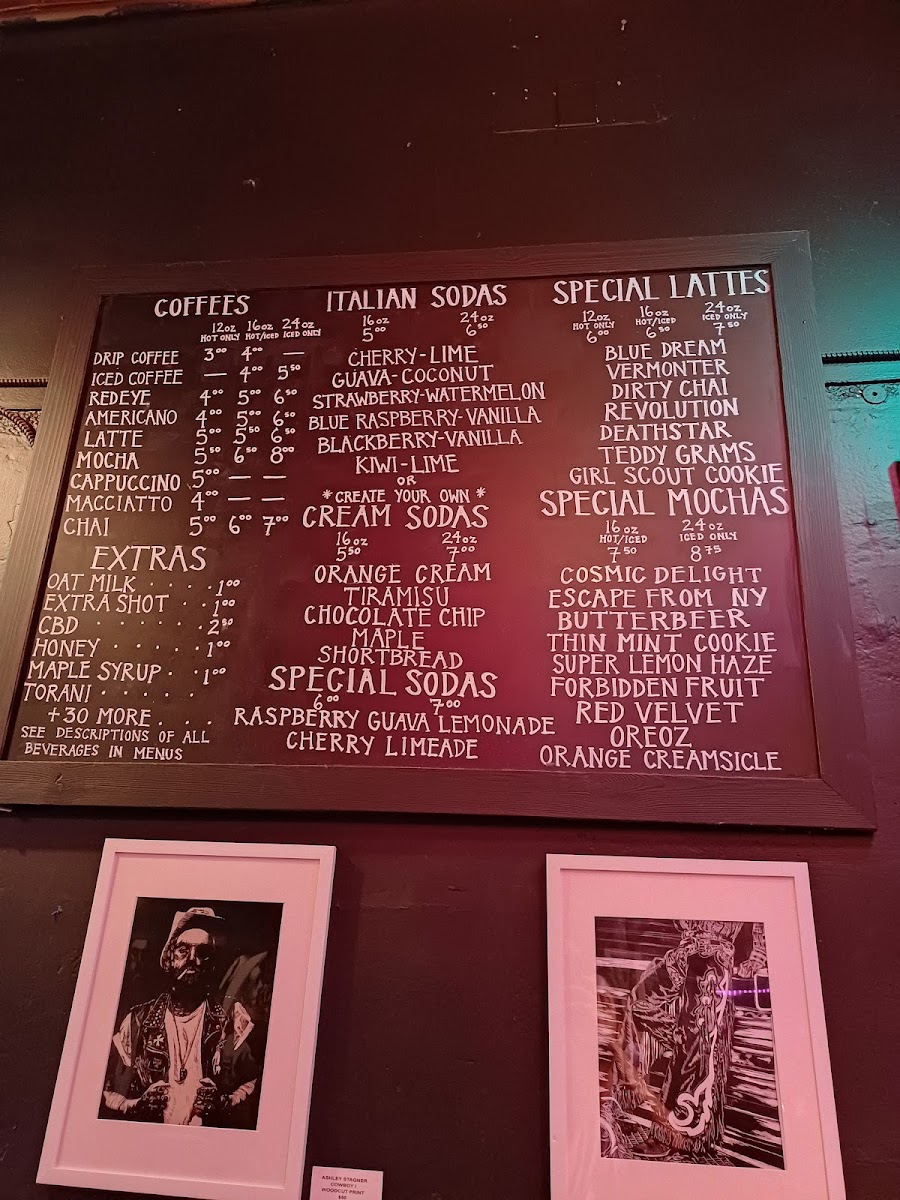 COFFEES
12oz 16oz 24oz
HOT ONLY HOT/ICED ICED ONLY
DRIP COFFEE 3⁰⁰ 4⁰⁰ —
ICED COFFEE — 4⁰⁰ 5⁵⁰
REDEYE 4⁰⁰ 5⁰⁰ 6⁵⁰
AMERICANO 4⁰⁰ 5⁰⁰ 6⁵⁰
LATTE 5⁰⁰ 5⁵⁰ 6⁵⁰
MOCHA 5⁵⁰ 6⁵⁰ 8⁰⁰
CAPPUCCINO 5⁰⁰ — —
MACCIATTO 4⁰⁰ — —
CHAI 5⁰⁰ 6⁰⁰ 7⁰⁰
EXTRAS
OAT MILK · · · · 1⁰⁰
EXTRA SHOT · · 1⁰⁰
CBD · · · · · · 2⁵⁰
HONEY · · · · · 1⁰⁰
MAPLE SYRUP · · 1⁰⁰
TORANI · · · · ·
+30 MORE . . .
SEE DESCRIPTIONS OF ALL
BEVERAGES IN MENUS
ITALIAN SODAS
16oz 24oz
5⁰⁰ 6⁵⁰
CHERRY-LIME
GUAVA-COCONUT
STRAWBERRY-WATERMELON
BLUE RASPBERRY-VANILLA
BLACKBERRY-VANILLA
KIWI-LIME
OR
*CREATE YOUR OWN*
CREAM SODAS
16oz 24oz
5⁵⁰ 7⁰⁰
ORANGE CREAM
TIRAMISU
CHOCOLATE CHIP
MAPLE
SHORTBREAD
SPECIAL SODAS
6⁰⁰ 7⁰⁰
RASPBERRY GUAVA LEMONADE
CHERRY LIMEADE
SPECIAL LATTES
12oz 16oz 24oz
HOT ONLY HOT/ICED ICED ONLY
6⁰⁰ 6⁵⁰ 7⁵⁰
BLUE DREAM
VERMONTER
DIRTY CHAI
REVOLUTION
DEATHSTAR
TEDDY GRAMS
GIRL SCOUT COOKIE
SPECIAL MOCHAS
16oz 24oz
HOT/ICED ICED ONLY
7⁵⁰ 8⁷⁵
COSMIC DELIGHT
ESCAPE FROM NY
BUTTERBEER
THIN MINT COOKIE
SUPER LEMON HAZE
FORBIDDEN FRUIT
RED VELVET
OREOZ
ORANGE CREAMSICLE
ASHLEY STAGNER
COWBOY I
WOODCUT PRINT